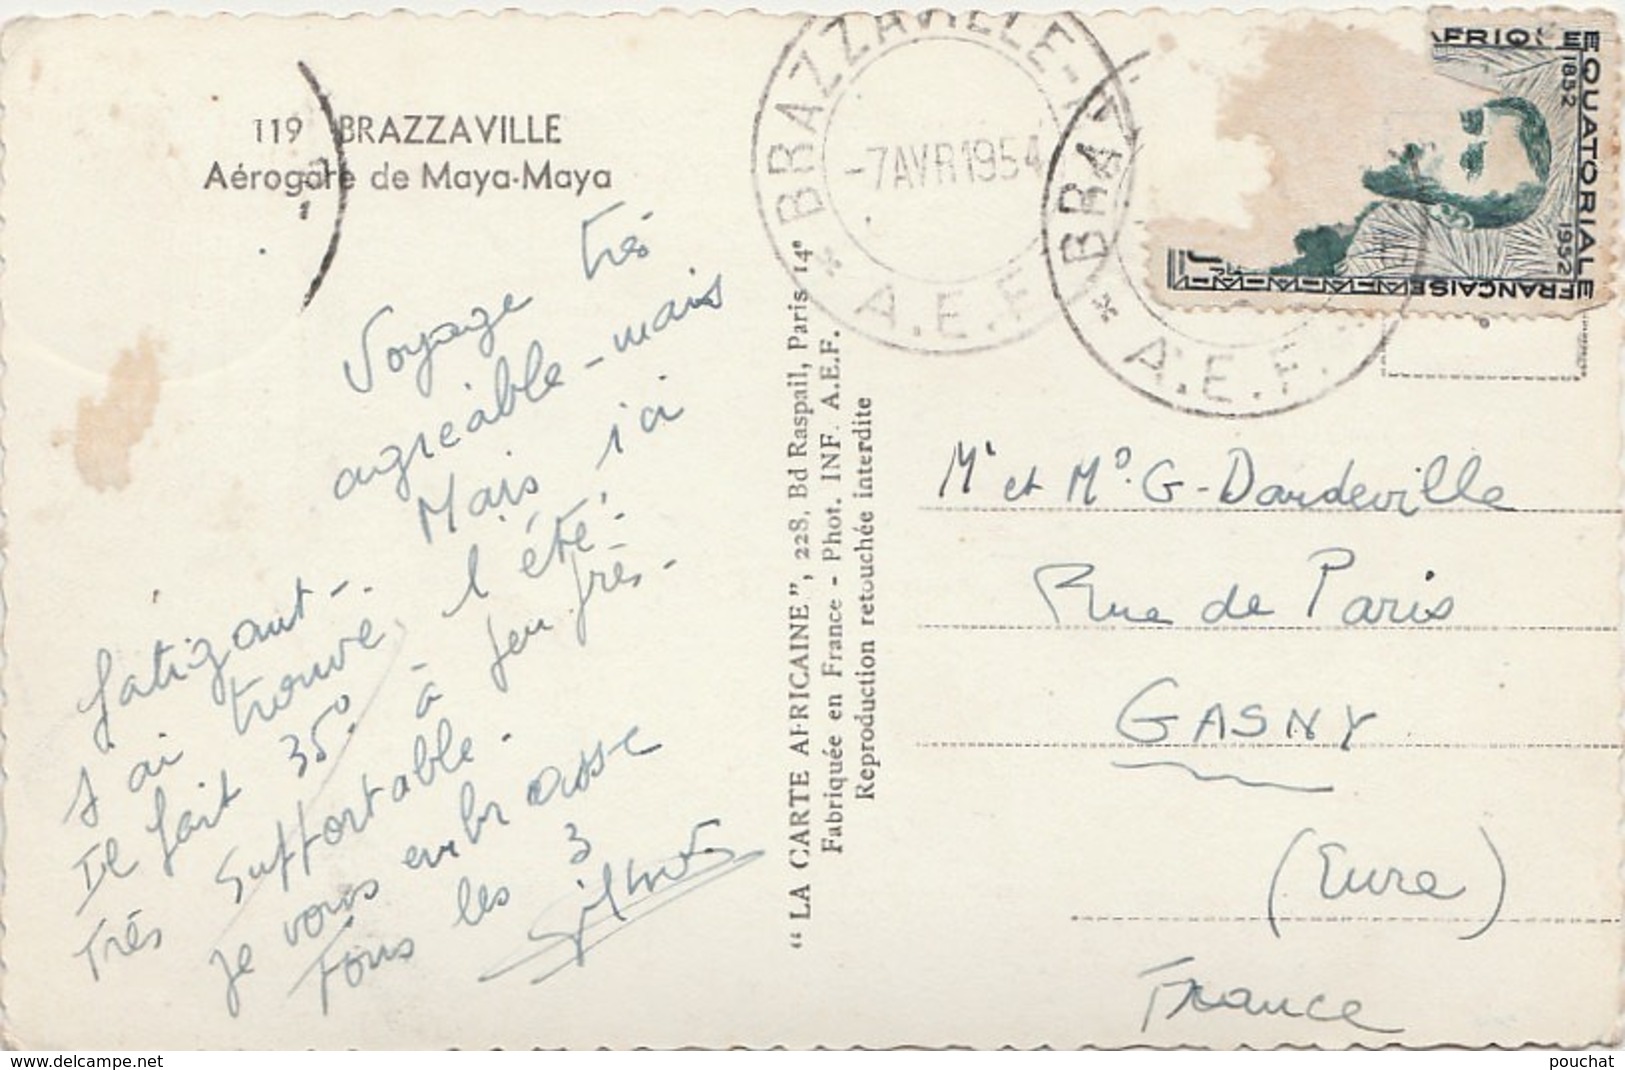 119 BRAZZAVILLE
Aérogare de Maya-Maya
Voyage très
agréable - mais
fatigant -. Mais ici
j'ai trouvé l'été -
Il fait 35° - à peu près -
très supportable -
je vous embrasse
tous les 3
"LA CARTE AFRICAINE", 228, Bd Raspail, Paris 14e
Fabriquée en France - Phot. INF. A.E.F.
Reproduction retouchée interdite
BRAZZAVILLE-
-7 AVR 1954
* A.E.F.
BRA
* A.E.F.
AFRIQUE
EQUATORIALE
FRANÇAISE
1852
1952
Mr et Me. G. Dardeville
Rue de Paris
GASNY
(Eure)
France
www.delcampe.net
pouchat